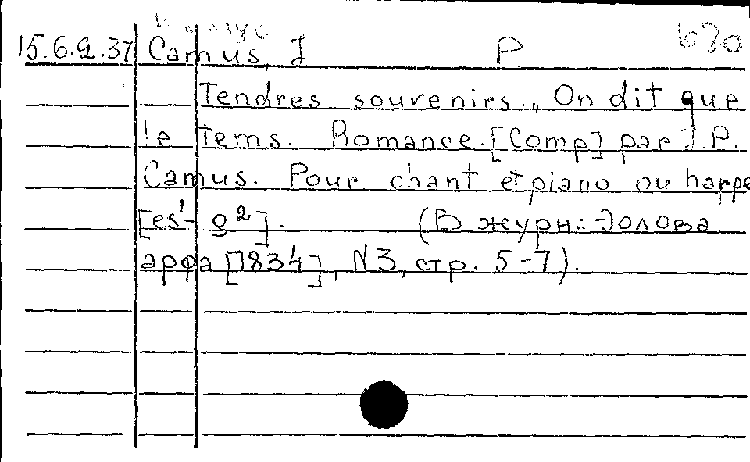 Камус
15.6.2.37 Camus, J P 670
Tendres souvenirs., On dit que
le tems. Romance. [Comp] par J. P.
Camus. Pour chant et piano ou harpe
[es¹- g²]. (В журн: Эолова
арфа [1834], N3, стр. 5-7).